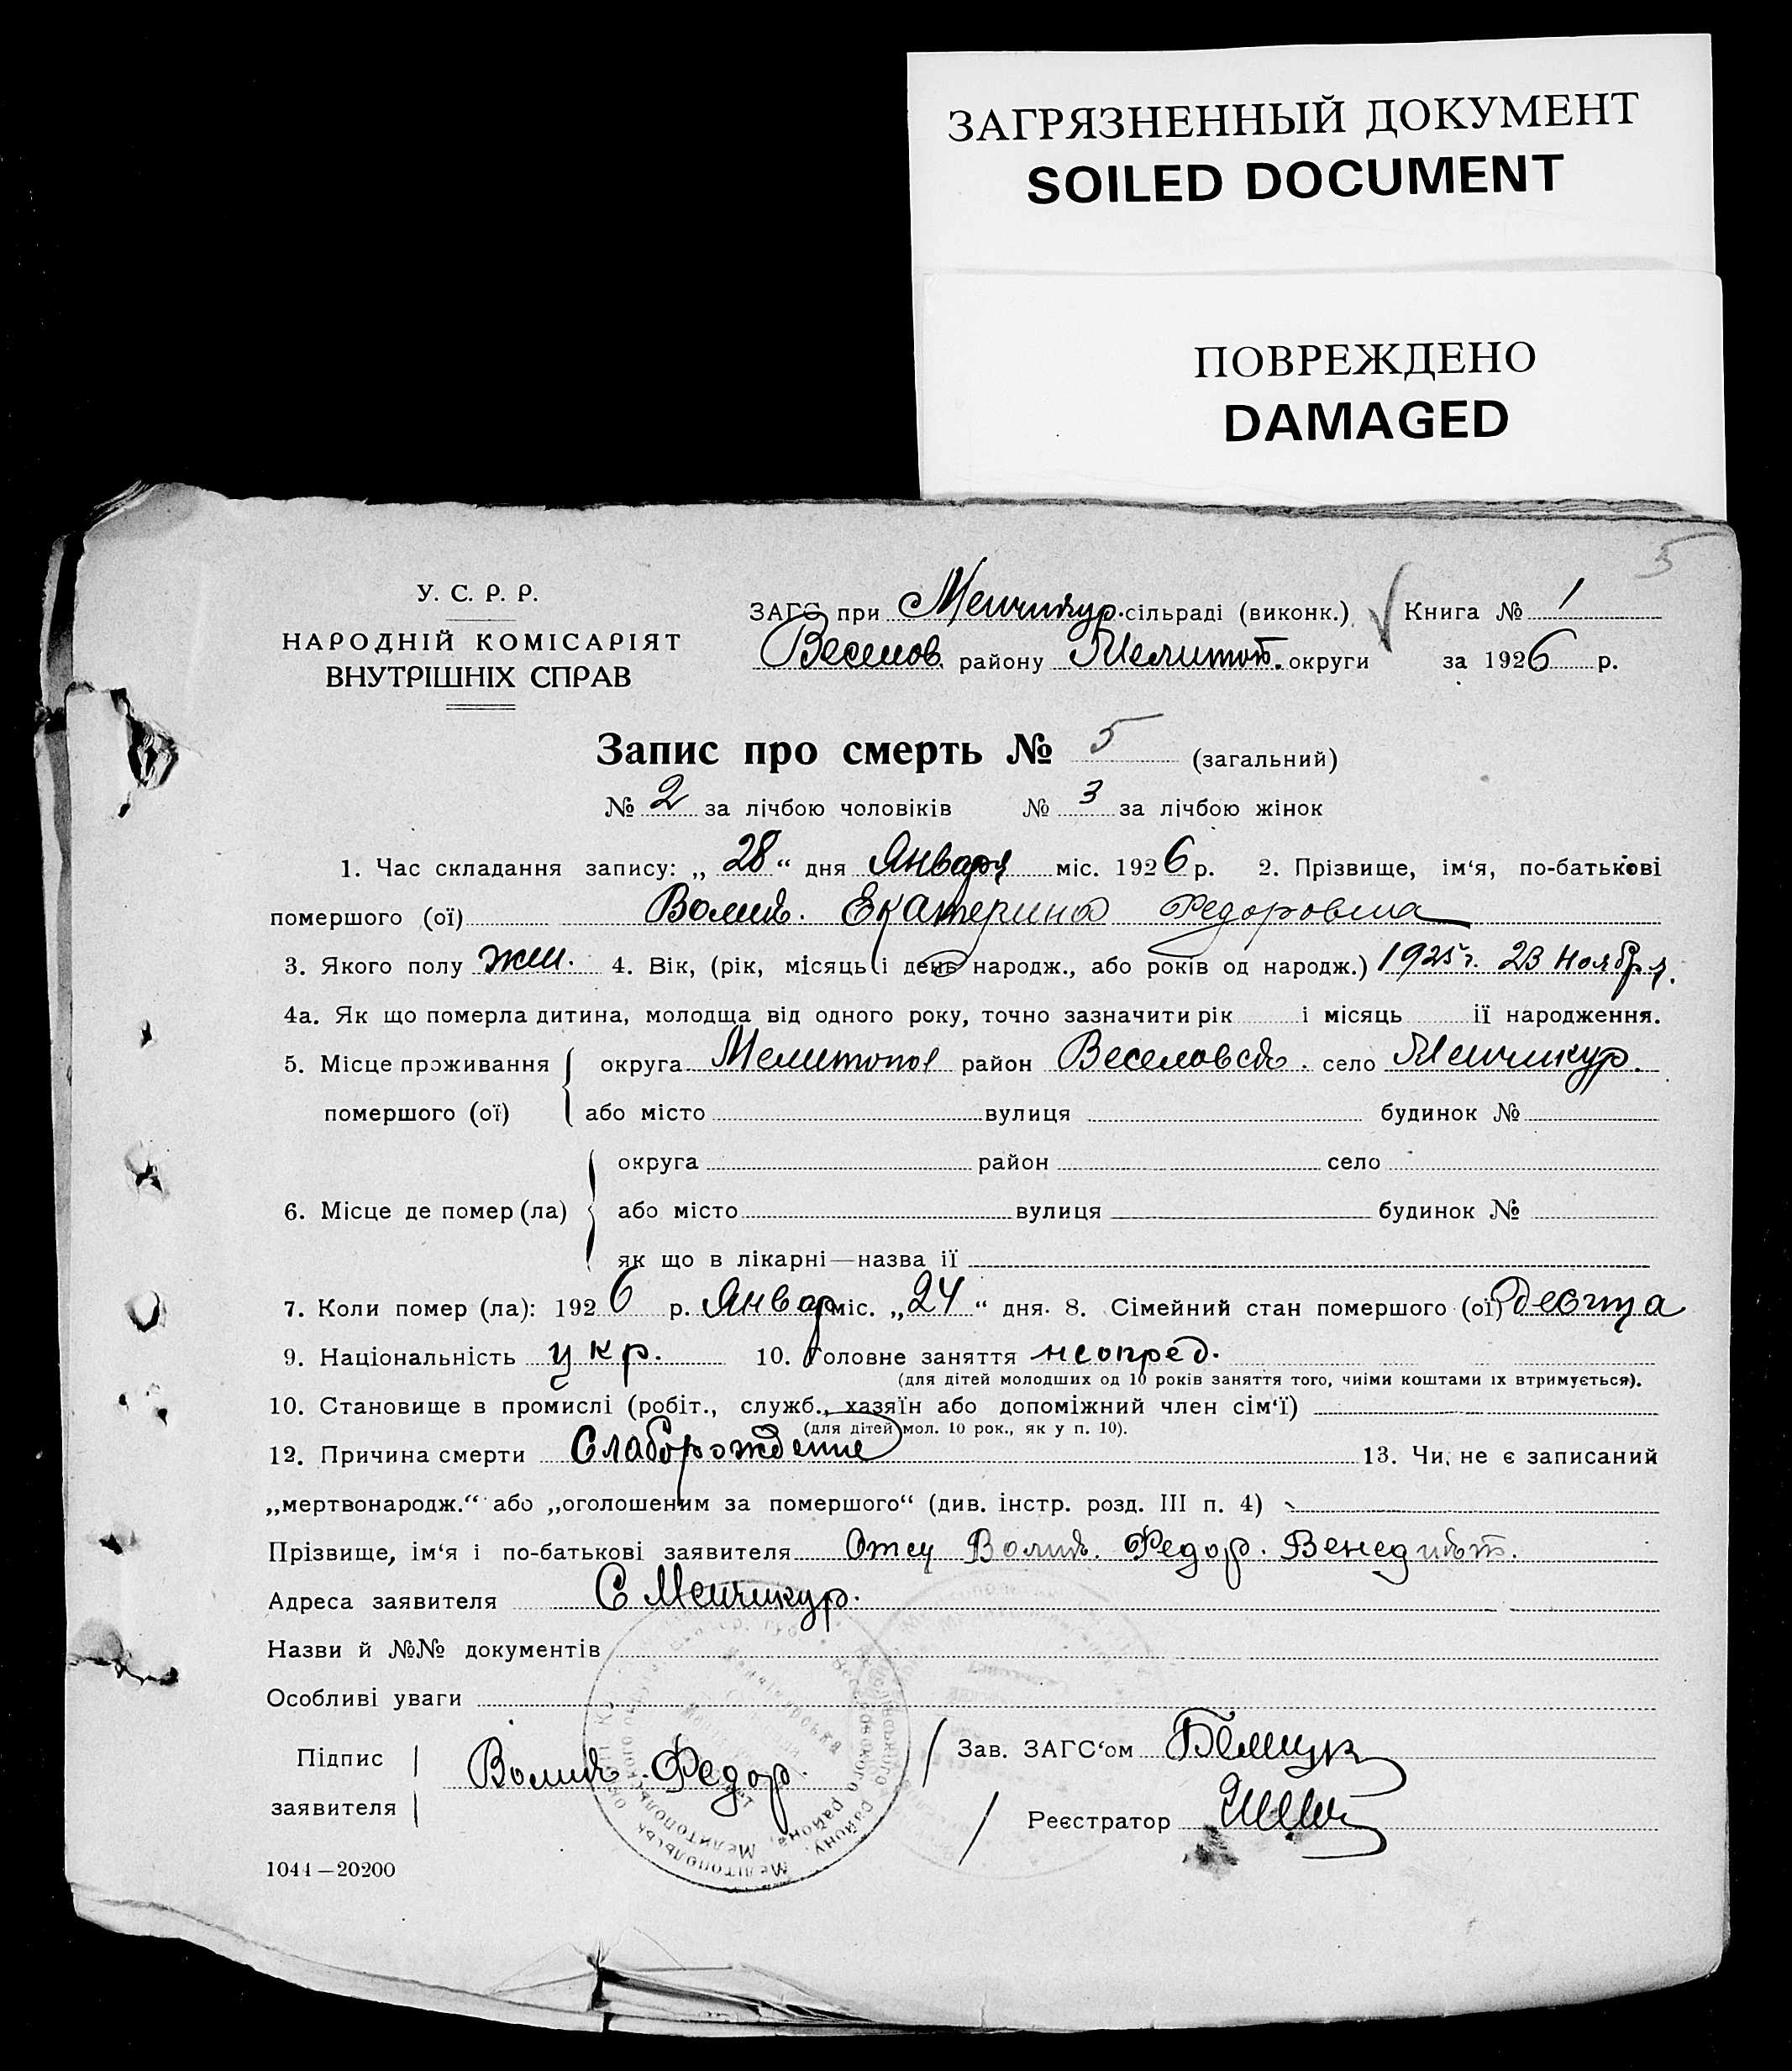 ЗАГРЯЗНЕННЫЙ ДОКУМЕНТ
SOILED DOCUMENT
ПОВРЕЖДЕНО
DAMAGED
5
У. С. Р. Р.
НАРОДНІЙ КОМІСАРІЯТ
ВНУТРІШНІХ СПРАВ
ЗАГС при Менчикур. сільраді (виконк.) Книга № 1
Веселов. району Мелитоп. округи за 1926 р.
Запис про смерть № 5 (загальний)
№ 2 за лічбою чоловіків № 3 за лічбою жінок
1. Час складання запису: „28“ дня Января міс. 1926 р. 2. Прізвище, ім‘я, по-батькові
помершого (ої) Волик. Екатерина Федоровна
3. Якого полу жен. 4. Вік, (рік, місяць і день народж., або років од народж.) 1925 г. 23 Ноября.
4а. Як що померла дитина, молодща від одного року, точно зазначити рік і місяць ії народження.
5. Місце проживання округа Мелитопол район Веселовск. село Менчикур.
помершого (ої) або місто вулиця будинок №
округа район село
6. Місце де помер (ла) або місто вулиця будинок №
як що в лікарні—назва ії
7. Коли помер (ла): 1926 р. Январ міс. „24“ дня. 8. Сімейний стан помершого (ої) девица
9. Національність укр. 10. Головне заняття неопред.
(для дітей молодших од 10 років заняття того, чиіми коштами іх втримується).
10. Становище в промислі (робіт., служб., хазяїн або допоміжний член сім‘ї)
(для дітей мол. 10 рок., як у п. 10).
12. Причина смерти Слаборождение 13. Чи, не є записаний
„мертвонародж.“ або „оголошеним за помершого“ (див. інстр. розд. III п. 4)
Прізвище, ім‘я і по-батькові заявителя Отец Волик. Федор. Венедикт.
Адреса заявителя С Менчикур.
Назви й №№ документів
Особливі уваги
Підпис заявителя Волик. Федор.
Зав. ЗАГС‘ом
Реєстратор
1044—20200